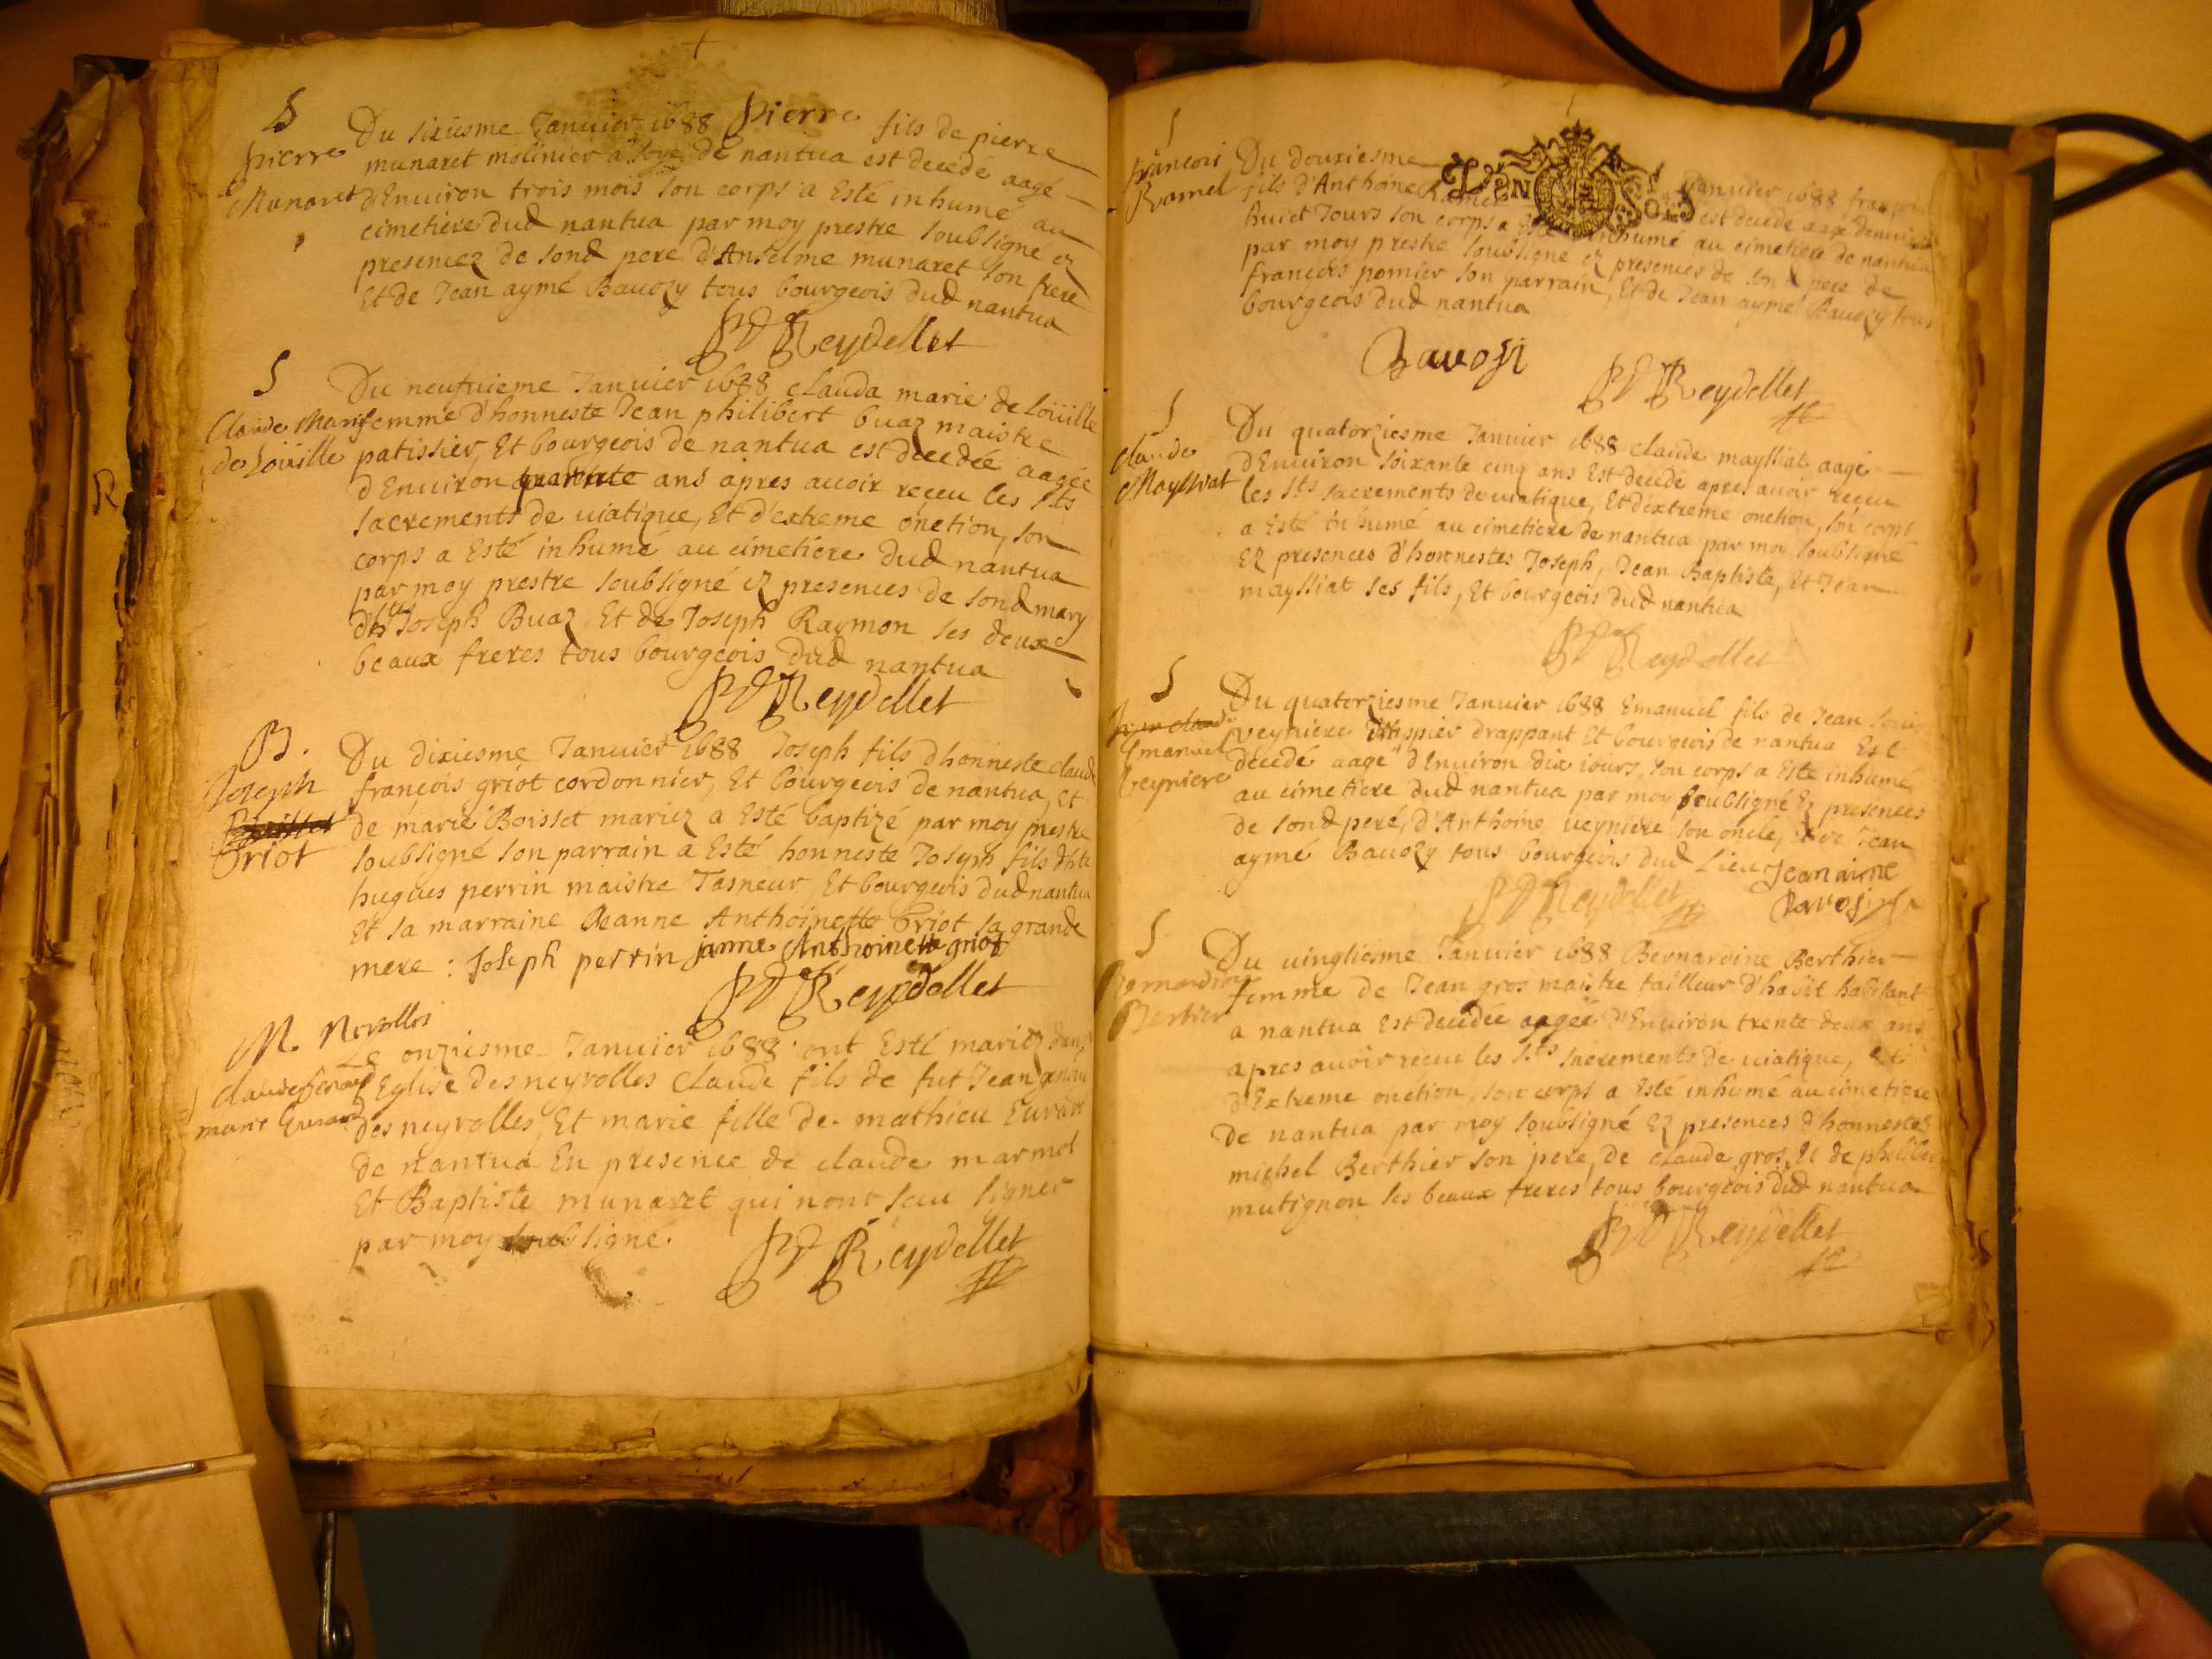 S
pierre
Munaret
Du sixiesme Januier 1688 Pierre fils de pierre
munaret molinier a soye de nantua est decedé aagé
d'Enuiron trois mois son corps a Esté inhumé au
cimetiere dud nantua par moy prestre soubsigné ez
presences de sond pere d'Anselme munaret son frere
Et de Jean aymé Bauozy tous bourgeois dud nantua
Reydellet
S
Claude Marie
de Loüille
Du neufuieme Januier 1688 clauda marie de loüille
femme d'honneste Jean philibert buaz maistre
patissier, Et bourgeois de nantua est decedée aagée
d'Enuiron quarante ans apres auoir reçeu les sts
sacrements de uiatique, Et d'extreme onction, son
corps a Esté inhumé au cimetiere dud nantua
par moy prestre soubsigné ez presences de sond mary
Joseph Buaz, Et de Joseph Raymon ses deux
beaux freres tous bourgeois dud nantua
Reydellet
R
B.
Joseph
Griot
Du dixiesme Januier 1688 Joseph fils d'honneste claude
françois griot cordonnier, Et bourgeois de nantua, et
de marie Boisset mariez a Esté baptizé par moy prestre
soubsigné son parrain a Esté honneste Joseph fils d'hte
hugues perrin maistre Tasneur, Et bourgeois dud nantua
Et sa marraine Jeanne Anthoinette Griot sa grande
mere : Joseph perrin janne Anthoinette griot
Reydellet
M. Nerolles
marie
Le onziesme Januier 1688 ont Esté mariez dans
l'Eglise des neyrolles claude fils de fut Jean
des neyrolles, Et marie fille de mathieu
de nantua En presence de claude marmot
Et Baptiste munaret qui nont seu signer
par moy soubsigné.
Reydellet
S
françois
Ramel
Du douziesme Januier 1688 françois
GEN SOLS
fils d'Anthoine Ramel est decedé aagé denuiron
huict Jours son corps a Esté inhumé au cimetiere de nantua
par moy prestre soubsigné ez presences de sond pere de
françois pomier son parrain, Et de Jean aymé Bauozy tous
bourgeois dud nantua
Bavosi
Reydellet
S
claude
Maysliat
Du quatorziesme Januier 1688 claude maysliat aagé
d'Enuiron soixante cinq ans Est decedé apres auoir reçeu
les sts sacrements de uiatique, Et d'extreme onction, son corps
a Esté inhumé au cimetiere de nantua par moy soubsigné
Ez presences d'honnestes Joseph, Jean Baptiste, Et Jean
maysliat ses fils, Et bourgeois dud nantua
Reydellet
S
Emanuel
Veyniere
Du quatorziesme Januier 1688 Emanuel fils de Jean
veyniere drappant Et bourgeois de nantua Est
decedé aagé d'Enuiron dix iours, son corps a Esté inhumé
au cimetiere dud nantua par moy soubsigné Ez presences
de sond pere, d'Anthoine ueyniere son oncle, et de Jean
aymé Bauozy tous bourgeois dud Lieu Jean aime
Reydellet Bavosi
S
Bernardine
Bertier
Du uingtiesme Januier 1688 Bernardine Berthier
femme de Jean gros maistre tailleur d'habit habitant
a nantua Est decedée aagée d'Enuiron trente deux ans
apres auoir reçeu les sts sacrements de uiatique, Et
d'Extreme onction, son corps a Esté inhumé au cimetiere
de nantua par moy soubsigné Ez presences d'honnestes
michel Berthier son pere, de claude gros, Et de philibert
mutignon ses beaux freres tous bourgeois dud nantua
Reydellet